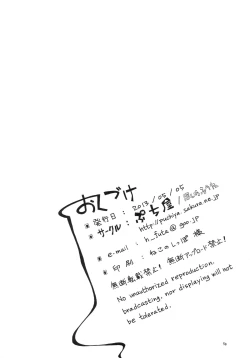 おくづけ
* 発行日 : 2013 / 05 / 05
* サークル : ぷち屋 /
http://puchiya.sakura.ne.jp
* e-mail : h_futa@goo.jp
* 印刷 : ねこのしっぽ 様
無断転載禁止! 無断アップロード禁止!
No unauthorized reproduction,
broadcasting, nor displaying will not
be tolerated.